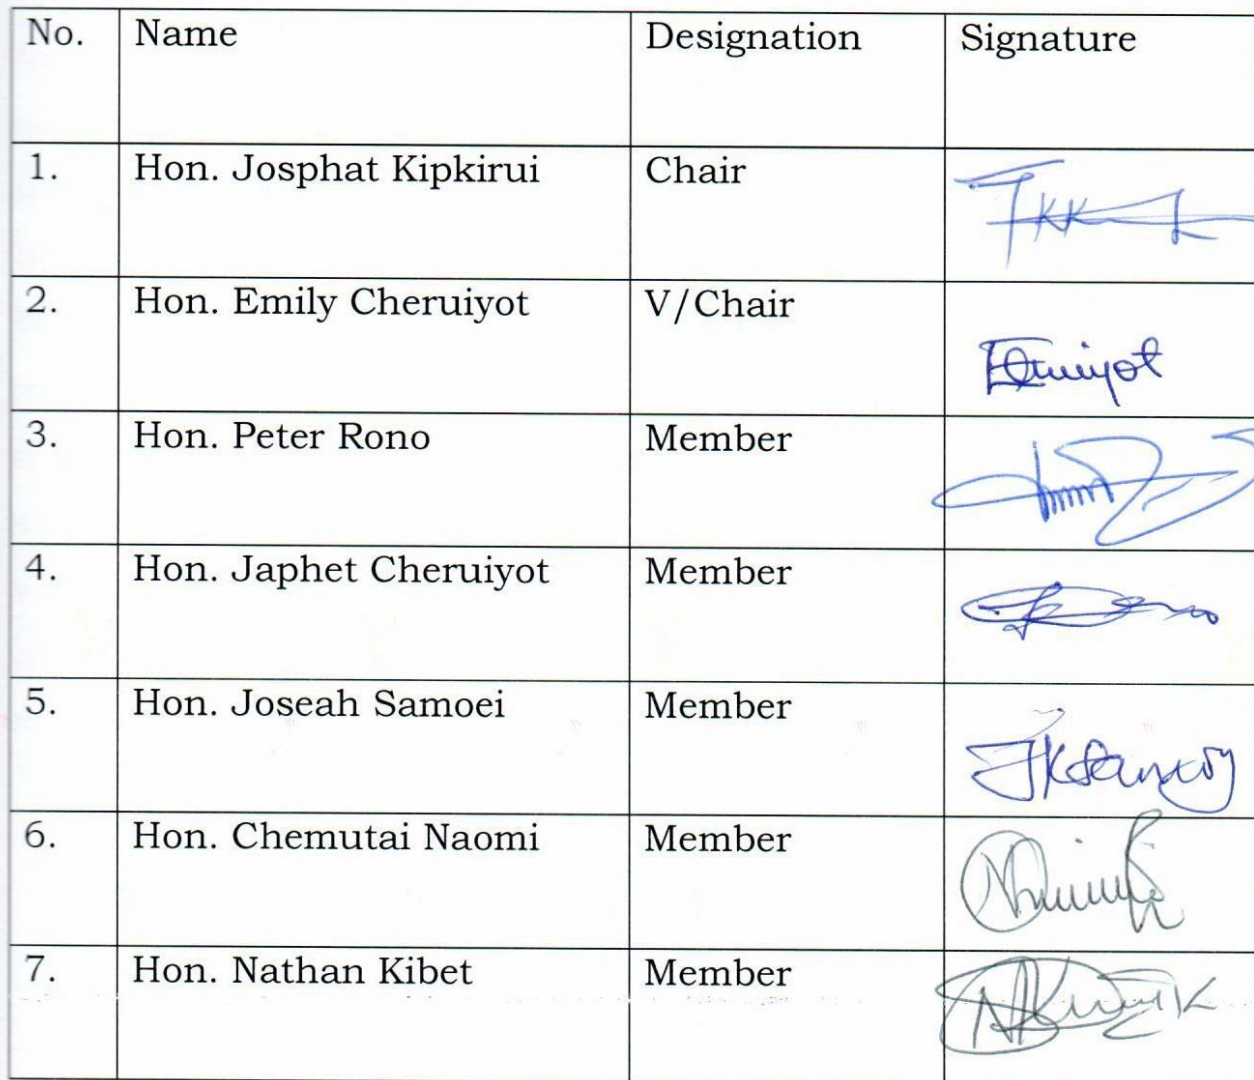 No. Name Designation Signature
1. Hon. Josphat Kipkirui Chair
2. Hon. Emily Cheruiyot V/Chair
3. Hon. Peter Rono Member
4. Hon. Japhet Cheruiyot Member
5. Hon. Joseah Samoei Member
6. Hon. Chemutai Naomi Member
7. Hon. Nathan Kibet Member